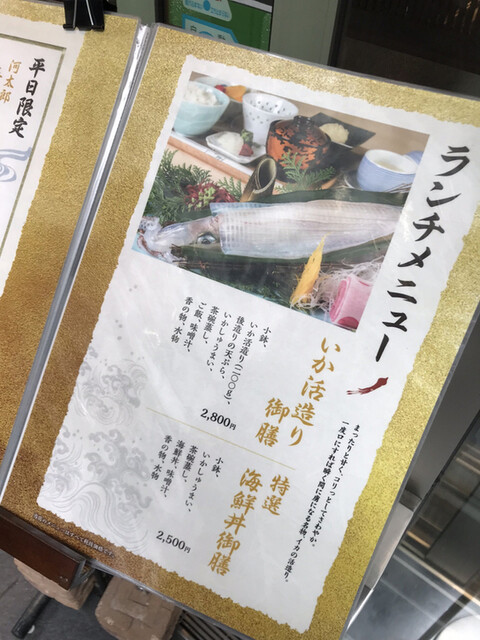 平日限定
河太郎
ランチメニュー
まったりと甘く、コリッとしてさわやか。
一度口にすれば瞬く間に虜になる名物、イカの活造り。
いか活造り
御膳
小鉢、
いか活造り(二〇〇g)、
後造りの天ぷら、
いかしゅうまい、
茶碗蒸し、
ご飯、味噌汁、
香の物、水物
2,800円
特選
海鮮丼御膳
小鉢、
いかしゅうまい、
茶碗蒸し、
海鮮丼、味噌汁、
香の物、水物
2,500円